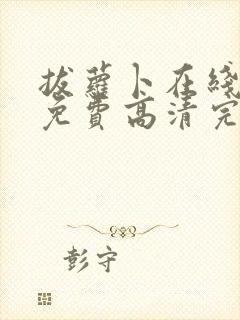 拔蘿卜在綫
免費高清完
彭守